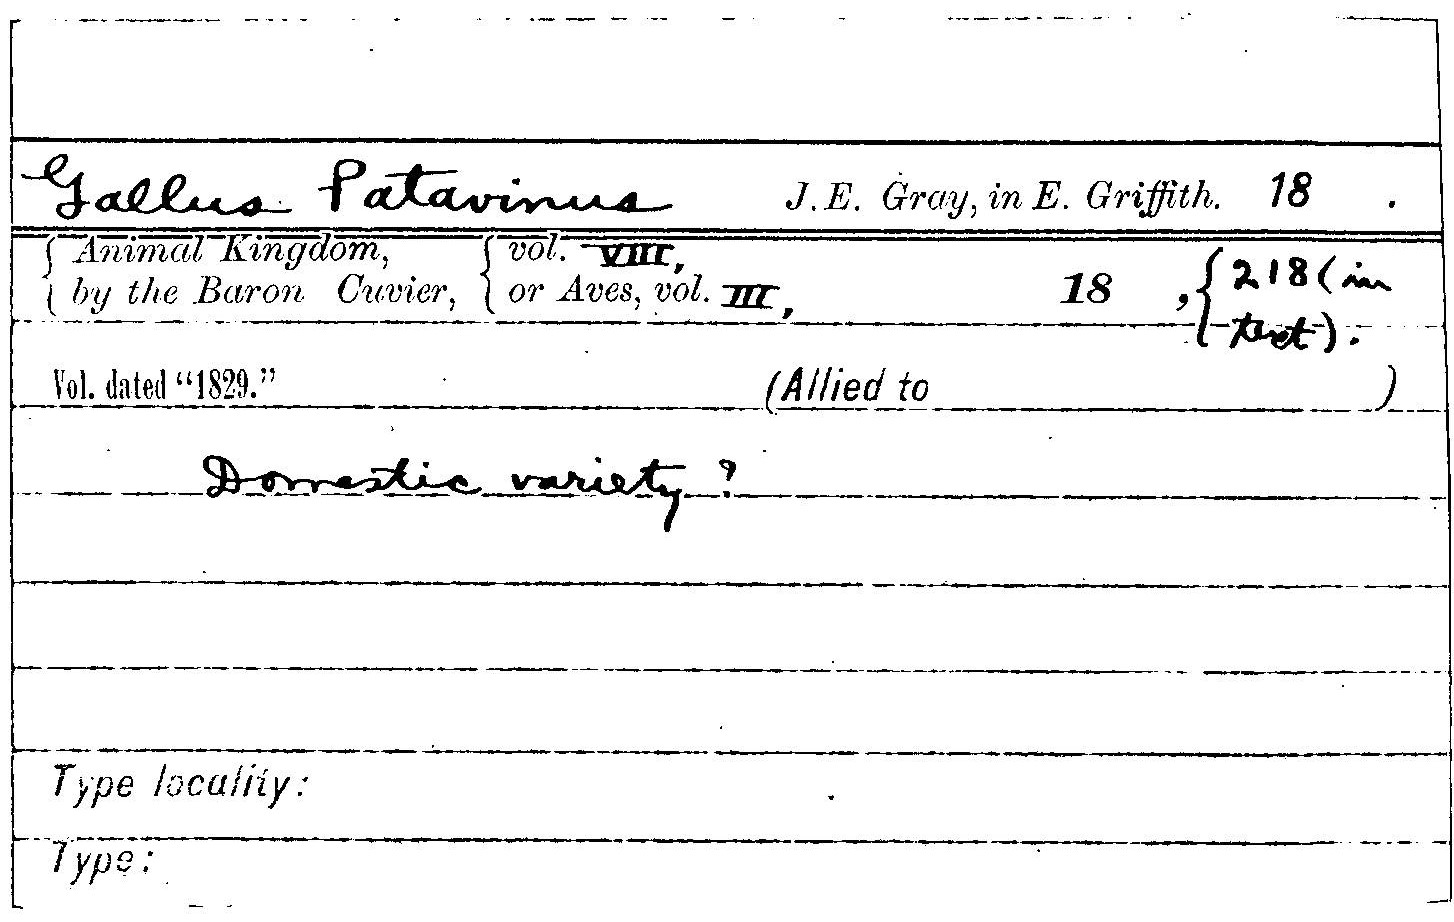 Gallus Patavinus J. E. Gray, in E. Griffith. 18 .
{ Animal Kingdom, { vol. VIII,
{ by the Baron Cuvier, { or Aves, vol. III, 18 , { 218 (in
text).
Vol. dated “1829.” (Allied to )
Domestic variety ?
Type locality:
Type: